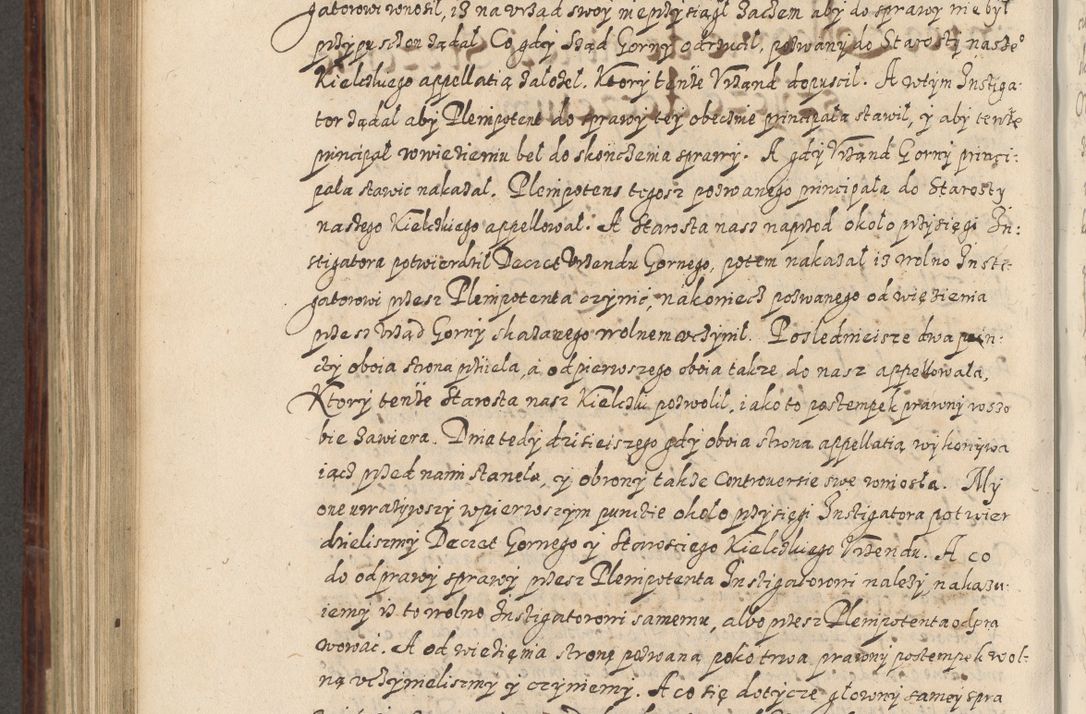 gatorowi wnosił, iż na vrząd swoy nieprzysiągł zaczem aby do sprawy nie był
przypuszczon ządał Co gdy Vrząd Gorny odrzucił, pozwany do Starosty naszeº
Kieleckiego appellatią założeł. Ktory tenże Vrzand dopuscił. A wtym Instiga-
tor ządał aby Plenipotent do sprawy tey obecznie principała stawił, y aby tenże
principał wowiezieniu beł do skonczenia sprawy. A gdy Vrzand Gorny princi:
pała stawic nakazał. Plenipotens tegosz pozwanego principała do Starosty
naszego Kieleckiego appellował. A Starosta nasz naprzod około przysięgi In:
stigatora potwierdził Decret Vrzendu Gornego, potem nakazał iż wolno Insti-
gatorowi przez Plenipotenta czynić, nakoniecz pozwanego od więzienia
przez Vrząd Gorny skazanego wolnem vczynił. Posledniejsze dwa pun-
cty oboia strona prziela, a od pierwszego oboia także do nasz appellowała,
Ktory tenże Starosta nasz Kielecki pozwolił, iako to postempek prawny wszo
bie zawiera. Dnia tedy dzisieiszego gdy oboia strona appellatią wykonywa
iącz przed nami stanela, y obrony także Controuersie swe wniosła. My
one vważywszy wpierwszym punctie około przysięgi Instigatora potwier
dzieliszmy Decret Gornego y Starosciego Kieleckiego Vrzendu. A co
do odprawy sprawy przez Plenipotenta Instigatorowi należy, nakazu-
iemy iż to wolno Instigatorowi samemu, albo przez Plenipotenta odpra
wować. A od więzięnia stronę pozwaną poko trwa prawny postempek wol-
ną vczynieliszmy y czyniemy. A co się dotycze głowny samey spra